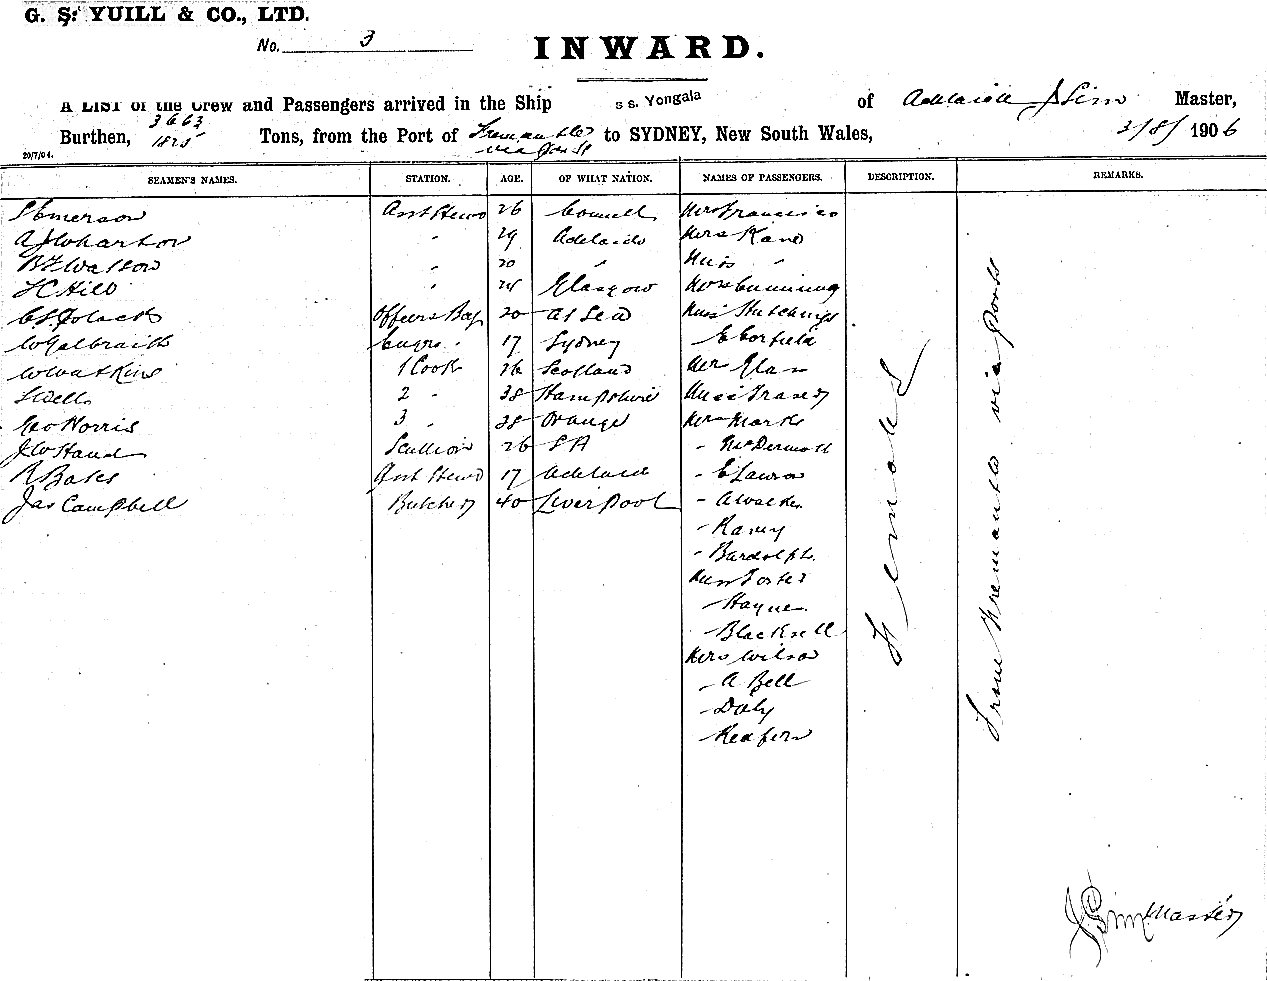 G. S. YUILL & CO., LTD.
No. 3
INWARD.
A LIST of the Crew and Passengers arrived in the Ship s s. Yongala of Adelaide J Sim Master,
3663
Burthen, 1825 Tons, from the Port of Fremantle to SYDNEY, New South Wales, 3/8/ 1906
via Ports
20/7/04.
SEAMEN'S NAMES. STATION. AGE. OF WHAT NATION. NAMES OF PASSENGERS. DESCRIPTION. REMARKS.
Emerson Asst Stewd 26 Mrs Francisco
A J Wharton " 29 Adelaide Mrs Kane
Watson " 20 " Miss "
Hill " Glasgow Mrs Cunning
Officers Boy 20 At Sea Miss Hutchings
W Galbraith Engrs " 17 Sydney E Corfield
W Watkins 1 Cook 36 Scotland Mrs Glass
Wells 2 " 38 Hampshire Miss Fraser
Geo Norris 3 " 38 Orange Mrs Marks
J W Hand Scullion 26 S A " McDermott
R Bates Asst Stewd 17 Adelaide " E Lawson
Jas Campbell Butcher 40 Liverpool " A Walker
" Bardolph
Miss Foster
" Hayne
" Blacksell
Mrs Wilson
" A Bell
" Daly
" Redfern
Female
From Fremantle via Ports
J Sim Master